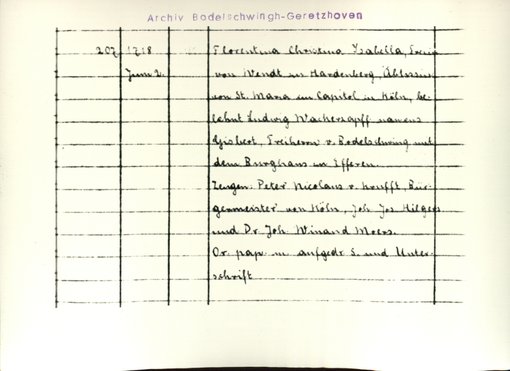 Archiv Bodelschwingh-Geretzhoven
207 1718 Florentina Christina Isabella, Freiin
Juni 2. von Wendt zu Hardenberg, Äbtissin
von St. Maria im Capitol in Köln, be-
lehnt Ludwig Wacherzapff namens
Gisbert, Freiherrn v. Bodelschwing mit
dem Burghaus in Efferen.
Zeugen: Peter Nicolaus v. Krufft, Bür-
germeister von Köln, Joh. Jos. Hilgers
und Dr. Joh. Winand Moers.
Or. pap. m. aufgedr. S. und Unter-
schrift